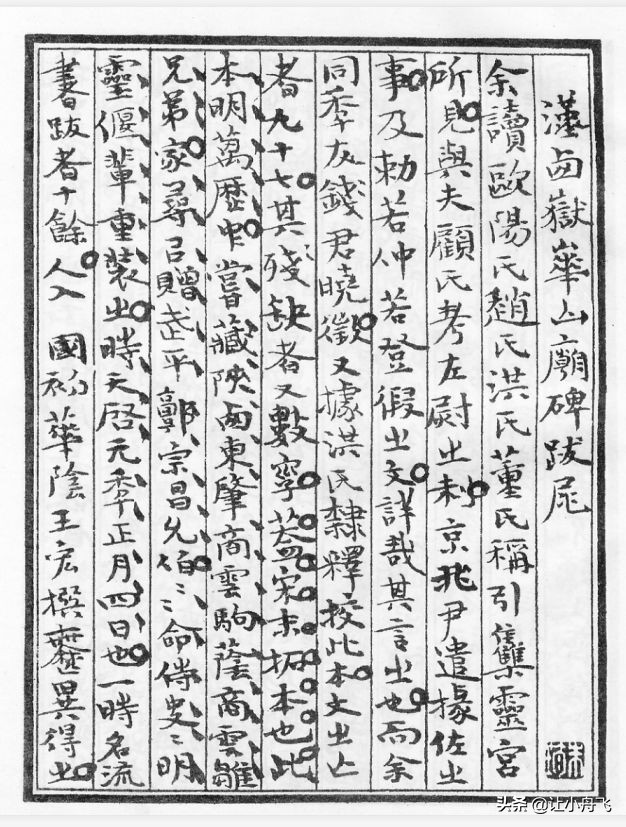 漢西嶽華山廟碑跋尾
余讀歐陽氏趙氏洪氏董氏稱引集靈宮
所見與夫顧氏考左尉之刺京兆尹遣掾佐之
事及勅若仲若登假之文詳哉其言之也而余
同秊友錢君曉徵又據洪氏隸釋挍此本文之亡
者九十七其殘缺者又數字葢宋末拓本也此
本明萬歷中嘗藏陝西東肇商雲駒蔭商雲雛
兄弟家尋吕贈武平郭宗昌允伯〻命侍史〻明
靈偃輩重裝之時天啓元秊正月四日也一時名流
書跋者十餘人入 國初華陰王宏撰無異得之
头条 @让小丹飞